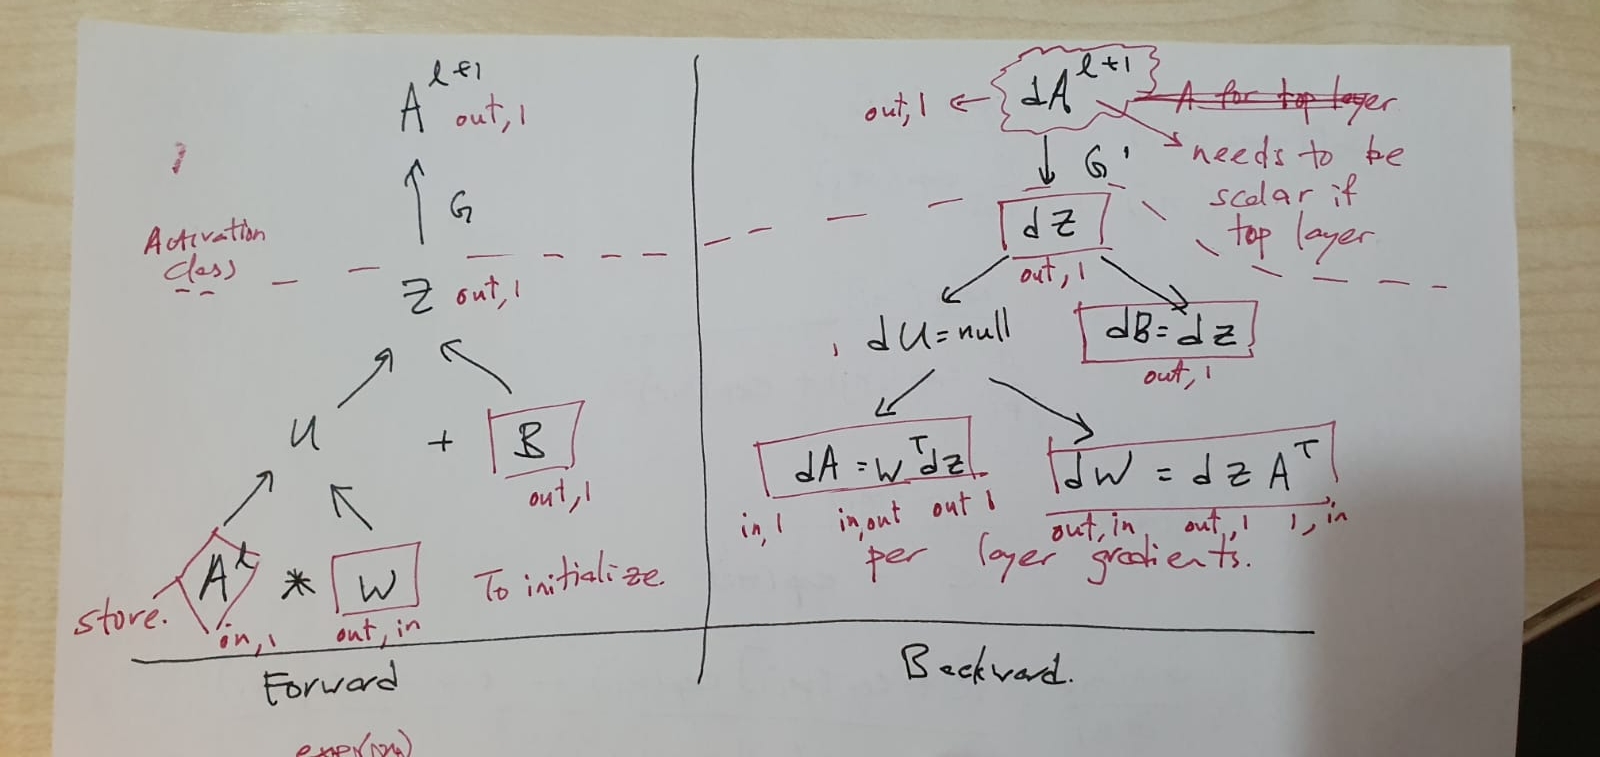 A^{l+1}
out, 1
G
Activation
class
Z out, 1
U + B
out, 1
A^l * W
To initialize.
store.
in, 1
out, in
Forward
dA^{l+1}
out, 1 ←
A for top layer
G'
needs to be
scalar if
top layer
dZ
out, 1
dU = null
dB = dz
out, 1
dA = W^T dz
in, 1 in, out out 1
dW = dz A^T
out, in out, 1 1, in
per layer gradients.
Backward.